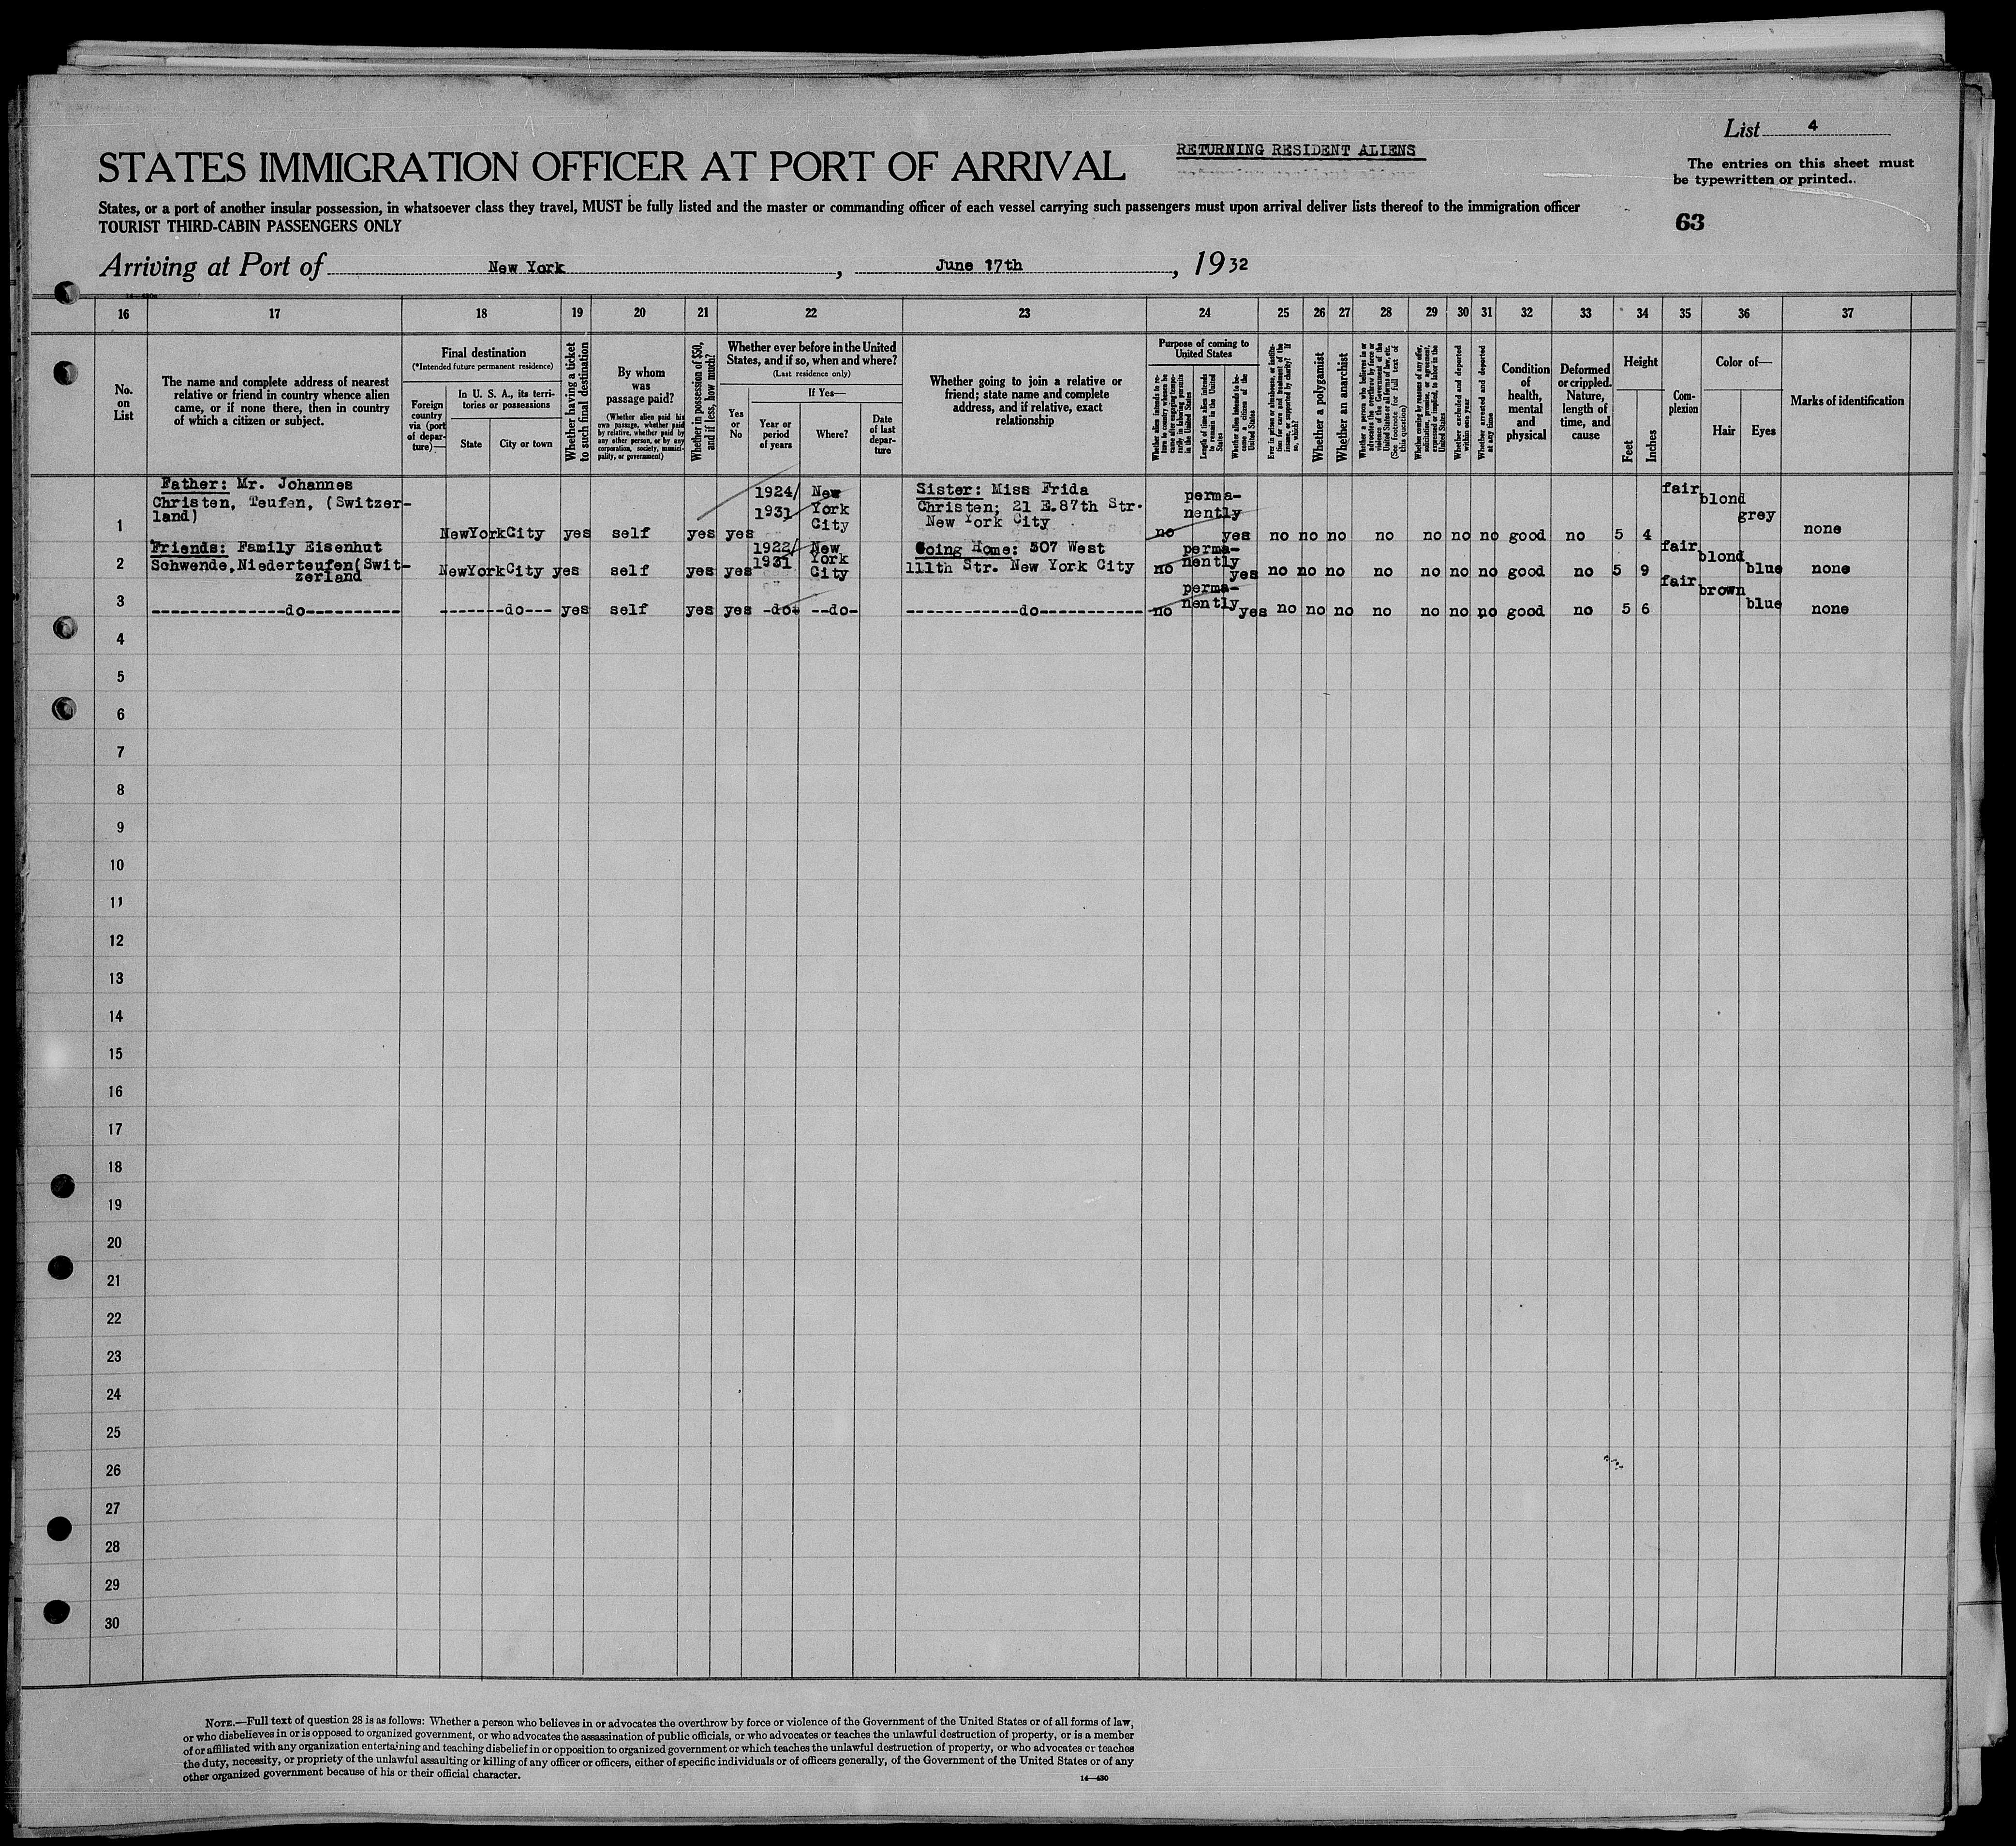 List 4
RETURNING RESIDENT ALIENS
STATES IMMIGRATION OFFICER AT PORT OF ARRIVAL
The entries on this sheet must
be typewritten or printed.
States, or a port of another insular possession, in whatsoever class they travel, MUST be fully listed and the master or commanding officer of each vessel carrying such passengers must upon arrival deliver lists thereof to the immigration officer
TOURIST THIRD-CABIN PASSENGERS ONLY
63
Arriving at Port of New York, June 17th, 1932
16 17 18 19 20 21 22 23 24 25 26 27 28 29 30 31 32 33 34 35 36 37
No.
on
List
The name and complete address of nearest
relative or friend in country whence alien
came, or if none there, then in country
of which a citizen or subject.
Final destination
(*Intended future permanent residence)
Foreign
country
via (port
of depar-
ture)—
In U. S. A., its terri-
tories or possessions
State
City or town
Whether having a ticket
to such final destination
By whom
was
passage paid?
(Whether alien paid his
own passage, whether paid
by relative, whether paid by
any other person, or by any
corporation, society, munici-
pality, or government)
Whether in possession of $50,
and if less, how much?
Whether ever before in the United
States, and if so, when and where?
(Last residence only)
Yes
or
No
If Yes—
Year or
period
of years
Where?
Date
of last
depar-
ture
Whether going to join a relative or
friend; state name and complete
address, and if relative, exact
relationship
Purpose of coming to
United States
Whether alien intends to re-
turn to country whence he
came after engaging tempo-
rarily in laboring pursuits
in the United States
Length of time alien intends
to remain in the United
States
Whether alien intends to be-
come a citizen of the
United States
Ever in prison or almshouse, or institu-
tion for care and treatment of the
insane, or supported by charity? If
so, which?
Whether a polygamist
Whether an anarchist
Whether a person who believes in or
advocates the overthrow by force or
violence of the Government of the
United States or all forms of law, etc.
(See footnote for full text of
this question)
Whether coming by reason of any offer,
solicitation, promise, or agreement,
expressed or implied, to labor in the
United States
Whether excluded and deported
within one year
Whether arrested and deported
at any time
Condition
of
health,
mental
and
physical
Deformed
or crippled.
Nature,
length of
time, and
cause
Height
Feet
Inches
Com-
plexion
Color of—
Hair
Eyes
Marks of identification
Father: Mr. Johannes
Christen, Teufen, (Switzer-
land)
1
NewYorkCity yes self yes yes
1924/
1931
New
York
City
Sister: Miss Frida
Christen; 21 E.87th Str.
New York City
no
perma-
nently
yes no no no no no no no good no 5 4
fair
blond
grey
none
Friends: Family Eisenhut
Schwende, Niederteufen(Swit-
zerland
2
NewYorkCity yes self yes yes
1922/
1931
New
York
City
Going Home: 507 West
111th Str. New York City
no
perma-
nently
yes no no no no no no no good no 5 9
fair
blond
blue
none
3
--------------do---------- -------do--- yes self yes yes -do- --do- ------------do-----------
no
perma-
nently
yes no no no no no no no good no 5 6
fair
brown
blue
none
4
5
6
7
8
9
10
11
12
13
14
15
16
17
18
19
20
21
22
23
24
25
26
27
28
29
30
NOTE.—Full text of question 28 is as follows: Whether a person who believes in or advocates the overthrow by force or violence of the Government of the United States or of all forms of law,
or who disbelieves in or is opposed to organized government, or who advocates the assassination of public officials, or who advocates or teaches the unlawful destruction of property, or is a member
of or affiliated with any organization entertaining and teaching disbelief in or opposition to organized government or which teaches the unlawful destruction of property, or who advocates or teaches
the duty, necessity, or propriety of the unlawful assaulting or killing of any officer or officers, either of specific individuals or of officers generally, of the Government of the United States or of any
other organized government because of his or their official character.
14—430